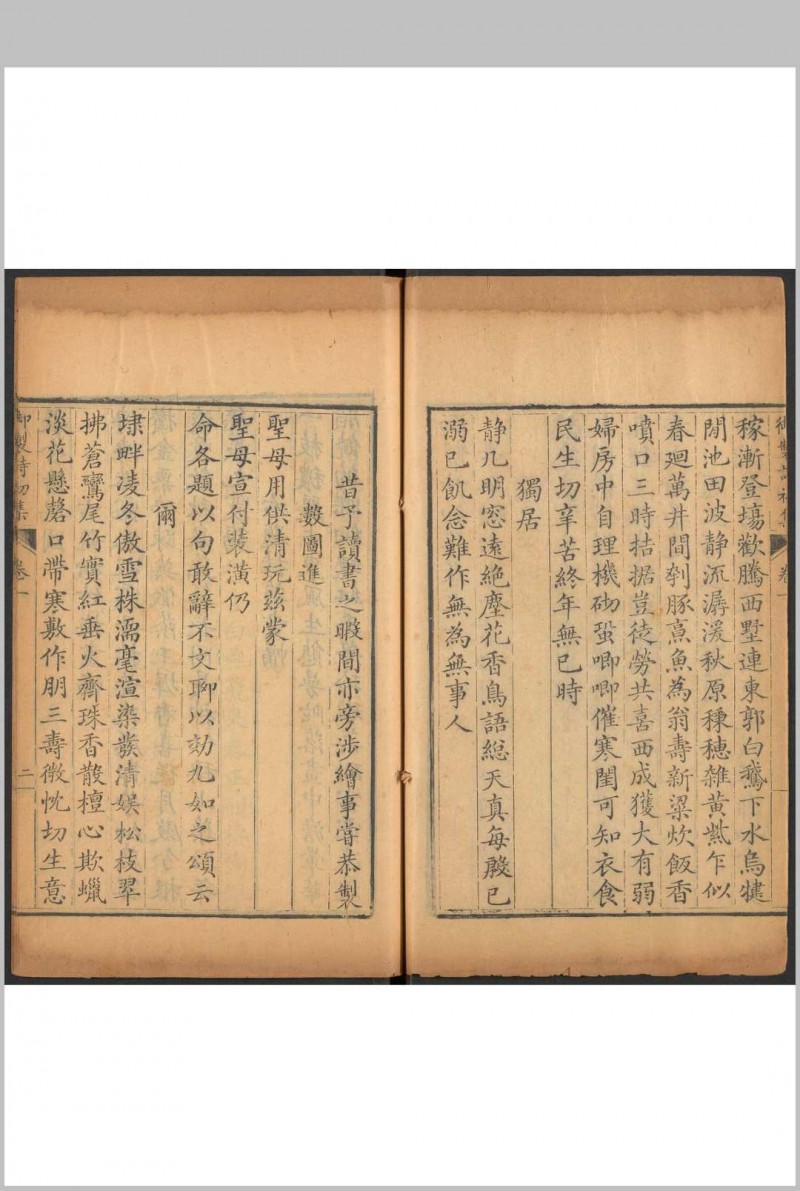 稼漸登場歡騰西墅連東郭白鵝下水烏犍
閒池田波静流潺湲秋原種穂雜黄紫乍似
春廻萬井間刲豚烹魚為翁壽新粱炊飯香
噴口三時拮据豈徒勞共喜西成獲大有弱
婦房中自理機砌蛩唧唧催寒閨可知衣食
民生切辛苦終年無已時
獨居
静几明窓遠絶塵花香鳥語総天真每殷已
溺已飢念難作無為無事人
昔予讀書之暇間亦旁涉繪事嘗恭製
數圖進
聖母用供清玩兹蒙
聖母宣付裝潢仍
命各題以句敢辭不文聊以効九如之頌云
爾
埭畔凌冬傲雪株濡毫渲染發清娱松枝翠
拂蒼鸞尾竹實紅垂火齊珠香散檀心欺蠟
淡花懸磬口帶寒敷作朋三壽微忱切生意
御製詩初集 卷一 二